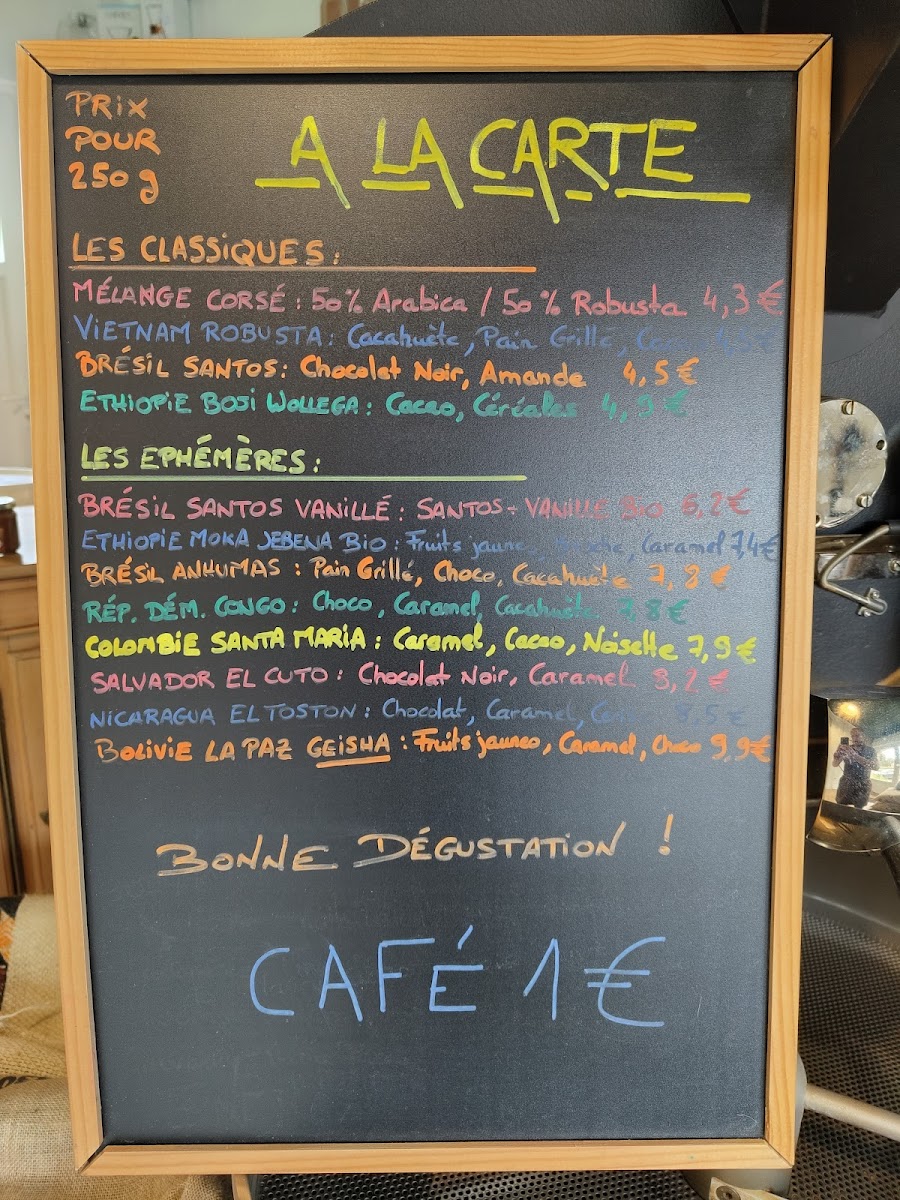 PRIX
POUR
250 g
A LA CARTE
LES CLASSIQUES :
MÉLANGE CORSÉ : 50% Arabica / 50% Robusta 4,3€
VIETNAM ROBUSTA : Cacahuète, Pain Grillé,
BRÉSIL SANTOS : Chocolat Noir, Amande 4,5€
ETHIOPIE BOJI WOLLEGA : Cacao, Céréales 4,9€
LES EPHÉMÈRES :
BRÉSIL SANTOS VANILLÉ : SANTOS - VANILLE Bio 6,2€
ETHIOPIE MOKA JEBENA BIO : Fruits jaunes, Caramel 7,4€
BRÉSIL ANHUMAS : Pain Grillé, Choco, Cacahuète 7,8€
RÉP. DÉM. CONGO : Choco, Caramel, Cacahuète 7,8€
COLOMBIE SANTA MARIA : Caramel, Cacao, Noisette 7,9€
SALVADOR EL CUTO : Chocolat Noir, Caramel 8,2€
NICARAGUA EL TOSTON : Chocolat, Caramel, 8,5€
BOLIVIE LA PAZ GEISHA : Fruits jaunes, Caramel, Choco 9,9€
BONNE DÉGUSTATION !
CAFÉ 1€